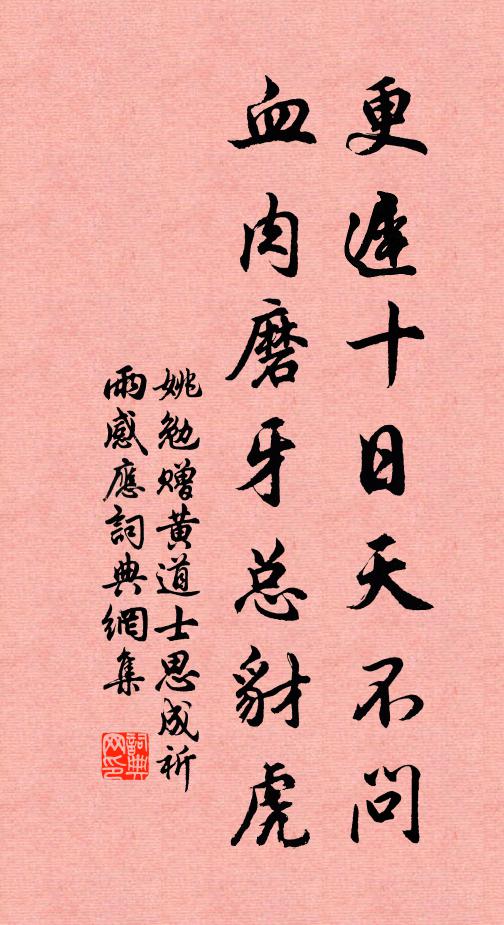 更遲十日天不問
血肉磨牙总豺虎
姚勉赠黄道士思成祈
雨感應詞典網集
詞典
网印